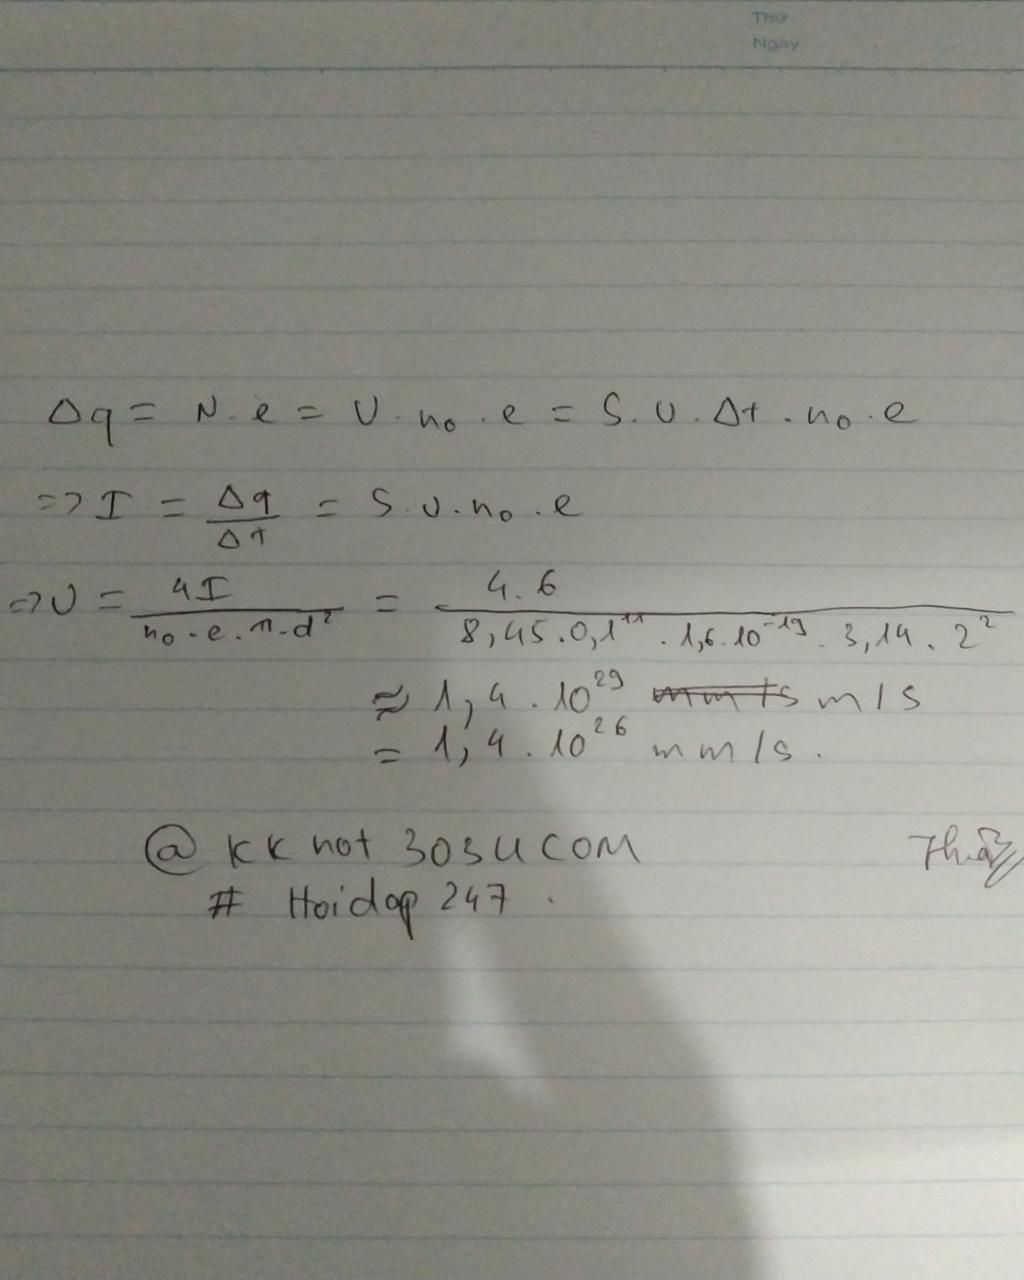 Thứ
Ngày
Δq = N.e = V.n₀.e = S.v.Δt.n₀.e
=> I = Δq/Δt = S.v.n₀.e
=> v = 4I/(n₀.e.π.d²) = 4.6/(8,45.0,1¹¹.1,6.10⁻¹⁹.3,14.2²)
≈ 1,4.10²⁹ m/s
= 1,4.10²⁶ mm/s.
@ kk not 3OSUCOM
# Hoidap 247.